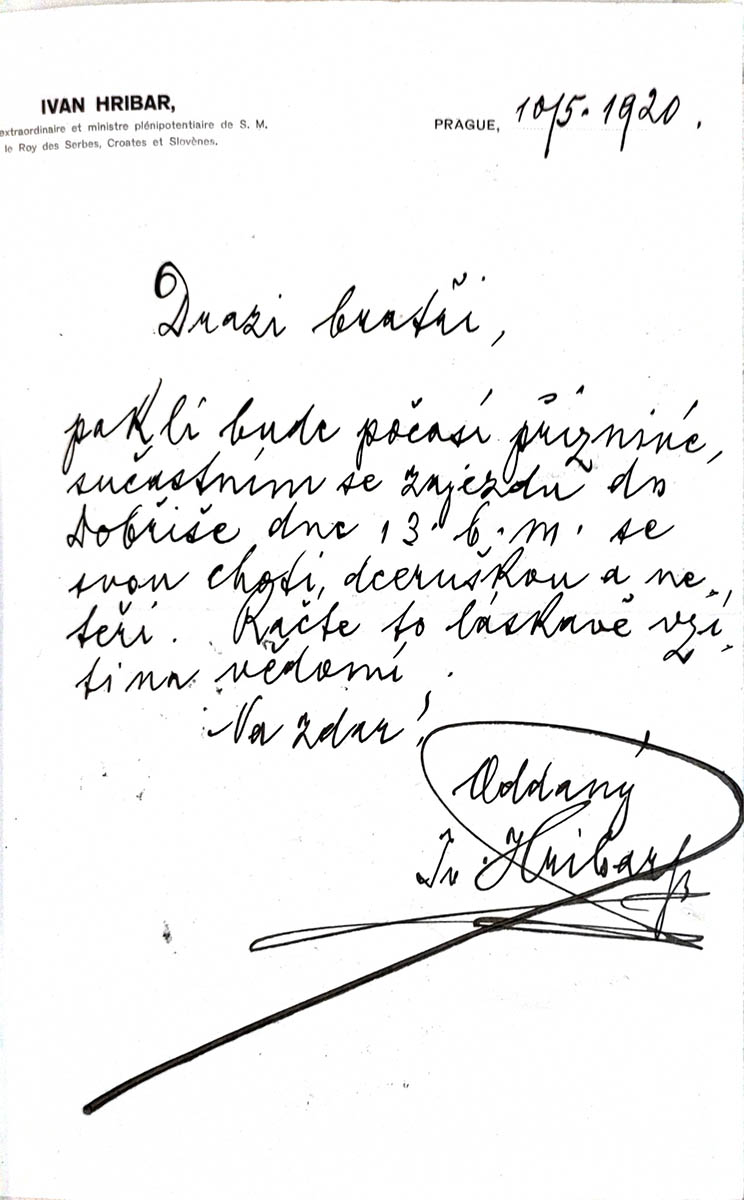 IVAN HRIBAR,
extraordinaire et ministre plénipotentiaire de S. M.
le Roy des Serbes, Croates et Slovènes.
PRAGUE, 10/5. 1920.
Drazi bratři,
pakli bude počasí příznivé,
sučastním se zajezdu do
Dobřiše dne 13. t. m. se
svou choti, dceruškou a ne-
teří. Račte to láskavě vzí-
ti na vědomí.
Na zdar!
Oddaný
Iv. Hribar